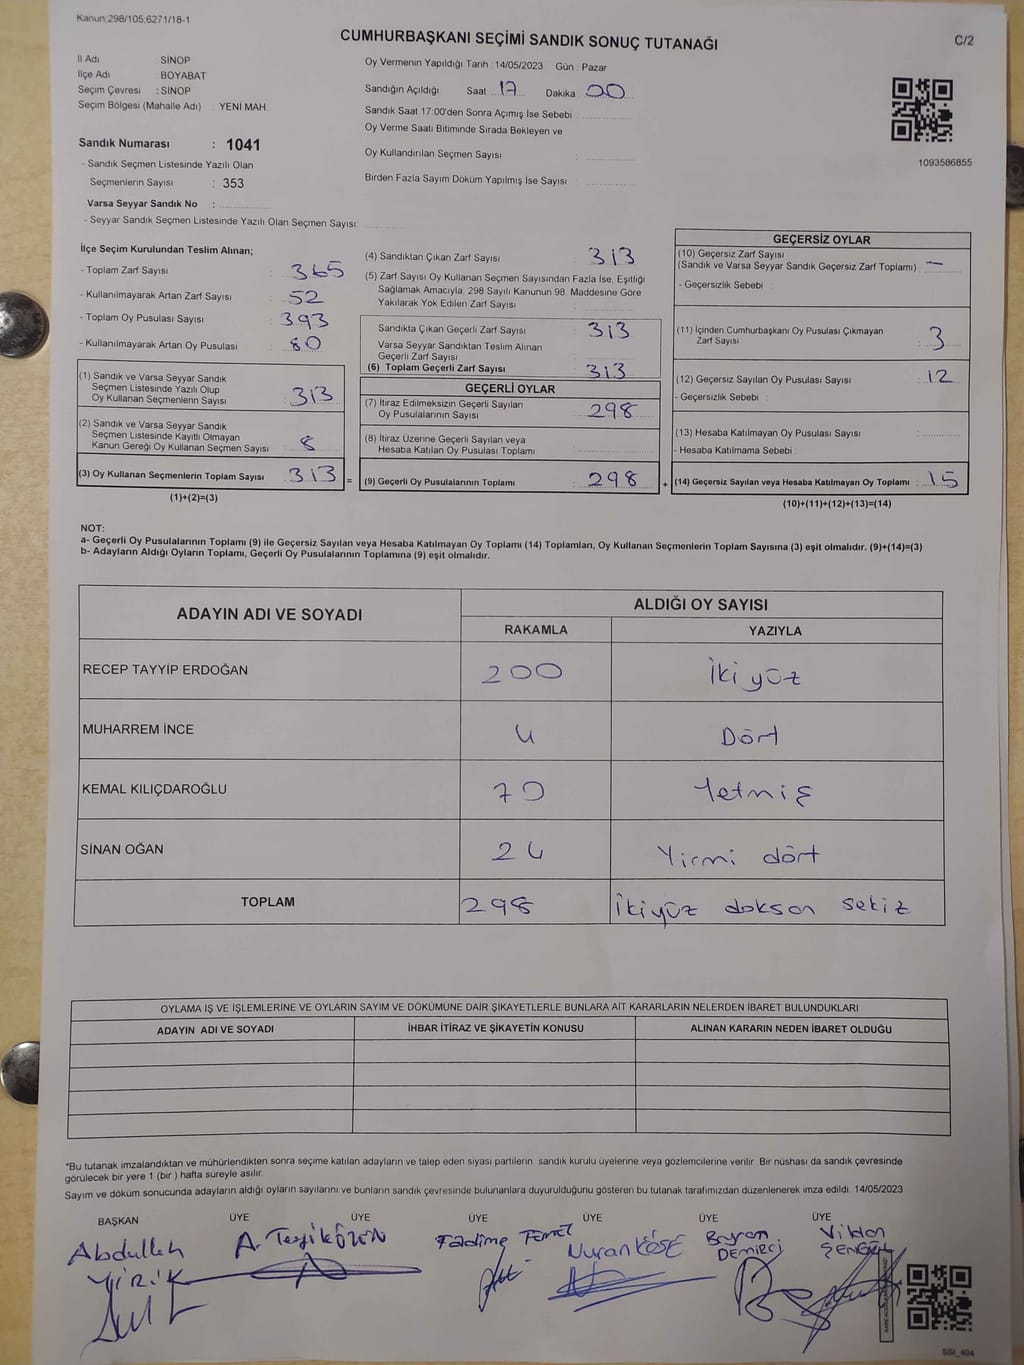 Kanun,298/105,6271/18-1
C/2
CUMHURBAŞKANI SEÇİMİ SANDIK SONUÇ TUTANAĞI
İl Adı : SİNOP
İlçe Adı : BOYABAT
Seçim Çevresi : SİNOP
Seçim Bölgesi (Mahalle Adı) : YENİ MAH.
Oy Vermenin Yapıldığı Tarih : 14/05/2023 Gün : Pazar
Sandığın Açıldığı Saat 17 Dakika 00
Sandık Saat 17:00'den Sonra Açımış İse Sebebi :
Oy Verme Saati Bitiminde Sırada Bekleyen ve
Oy Kullandırılan Seçmen Sayısı :
Birden Fazla Sayım Döküm Yapılmış İse Sayısı :
1093586855
Sandık Numarası : 1041
- Sandık Seçmen Listesinde Yazılı Olan
Seçmenlerin Sayısı : 353
Varsa Seyyar Sandık No :
- Seyyar Sandık Seçmen Listesinde Yazılı Olan Seçmen Sayısı:
İlçe Seçim Kurulundan Teslim Alınan;
- Toplam Zarf Sayısı : 365
- Kullanılmayarak Artan Zarf Sayısı : 52
- Toplam Oy Pusulası Sayısı : 393
- Kullanılmayarak Artan Oy Pusulası : 80
(1) Sandık ve Varsa Seyyar Sandık
Seçmen Listesinde Yazılı Olup
Oy Kullanan Seçmenlerin Sayısı : 313
(2) Sandık ve Varsa Seyyar Sandık
Seçmen Listesinde Kayıtlı Olmayan
Kanun Gereği Oy Kullanan Seçmen Sayısı : 8
(3) Oy Kullanan Seçmenlerin Toplam Sayısı : 313 =
(1)+(2)=(3)
(4) Sandıktan Çıkan Zarf Sayısı : 313
(5) Zarf Sayısı Oy Kullanan Seçmen Sayısından Fazla İse, Eşitliği
Sağlamak Amacıyla, 298 Sayılı Kanunun 98. Maddesine Göre
Yakılarak Yok Edilen Zarf Sayısı :
Sandıkta Çıkan Geçerli Zarf Sayısı : 313
Varsa Seyyar Sandıktan Teslim Alınan
Geçerli Zarf Sayısı :
(6) Toplam Geçerli Zarf Sayısı : 313
GEÇERLİ OYLAR
(7) İtiraz Edilmeksizin Geçerli Sayılan
Oy Pusulalarının Sayısı : 298
(8) İtiraz Üzerine Geçerli Sayılan veya
Hesaba Katılan Oy Pusulası Toplamı :
(9) Geçerli Oy Pusulalarının Toplamı : 298 +
GEÇERSİZ OYLAR
(10) Geçersiz Zarf Sayısı
(Sandık ve Varsa Seyyar Sandık Geçersiz Zarf Toplamı) : —
- Geçersizlik Sebebi :
(11) İçinden Cumhurbaşkanı Oy Pusulası Çıkmayan
Zarf Sayısı : 3
(12) Geçersiz Sayılan Oy Pusulası Sayısı : 12
- Geçersizlik Sebebi :
(13) Hesaba Katılmayan Oy Pusulası Sayısı :
- Hesaba Katılmama Sebebi :
(14) Geçersiz Sayılan veya Hesaba Katılmayan Oy Toplamı : 15
(10)+(11)+(12)+(13)=(14)
NOT:
a- Geçerli Oy Pusulalarının Toplamı (9) ile Geçersiz Sayılan veya Hesaba Katılmayan Oy Toplamı (14) Toplamları, Oy Kullanan Seçmenlerin Toplam Sayısına (3) eşit olmalıdır. (9)+(14)=(3)
b- Adayların Aldığı Oyların Toplamı, Geçerli Oy Pusulalarının Toplamına (9) eşit olmalıdır.
ADAYIN ADI VE SOYADI ALDIĞI OY SAYISI
RAKAMLA YAZIYLA
RECEP TAYYİP ERDOĞAN 200 İkiyüz
MUHARREM İNCE 4 Dört
KEMAL KILIÇDAROĞLU 70 Yetmiş
SİNAN OĞAN 24 Yirmi dört
TOPLAM 298 İkiyüz doksan sekiz
OYLAMA İŞ VE İŞLEMLERİNE VE OYLARIN SAYIM VE DÖKÜMÜNE DAİR ŞİKAYETLERLE BUNLARA AİT KARARLARIN NELERDEN İBARET BULUNDUKLARI
ADAYIN ADI VE SOYADI İHBAR İTİRAZ VE ŞİKAYETİN KONUSU ALINAN KARARIN NEDEN İBARET OLDUĞU
*Bu tutanak imzalandıktan ve mühürlendikten sonra seçime katılan adayların ve talep eden siyasi partilerin sandık kurulu üyelerine veya gözlemcilerine verilir. Bir nüshası da sandık çevresinde
görülecek bir yere 1 (bir ) hafta süreyle asılır.
Sayım ve döküm sonucunda adayların aldığı oyların sayılarını ve bunların sandık çevresinde bulunanlara duyurulduğunu gösteren bu tutanak tarafımızdan düzenlenerek imza edildi. 14/05/2023
BAŞKAN ÜYE ÜYE ÜYE ÜYE ÜYE ÜYE
Abdullah
YİRİK
Fadime Temel
Nuran KÖSE
DEMİRCİ
ŞENGÜL